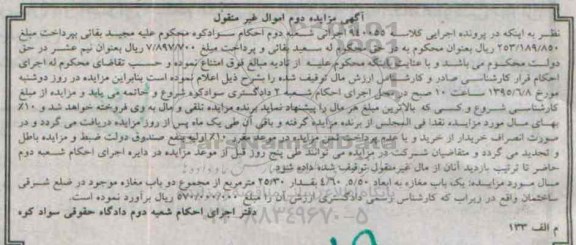 آگهی مزایده دوم اموال غیر منقول
نظـر به اینکه در پرونده اجرایی کلاسـه ۹۴۰۰۵۵ اجرائی شـعبه دوم احکام سـوادکوه محکوم علیه مجیـد بقائی بپرداخت مبلغ
۲۵۳/۱۸۹/۸۵۰ ریال بعنوان محکوم به در حق محکوم له سـعید بقائی و پرداخت مبلغ ۷/۸۹۷/۷۰۰ ریال بعنوان نیم عشـر در حق
دولت محکـوم می باشـد و با عنایت باینکه محکوم علیـه از تادیه مبالغ فوق امتناع نموده و حسـب تقاضای محکوم له اجرای
احکام قرار کارشناسـی صادر و کارشـناس ارزش مال توقیف شـده را بشـرح ذیل اعلام نموده است بنابراین مزایده در روز دوشنبه
مورخ ۱۳۹۵/۶/۸ سـاعت ۱۰ صبح در محل اجرای احکام شـعبه ۲ دادگستری سـوادکوه شـروع و خاتمه می یابد و مزایده از مبلغ
کارشناسـی شـروع و کسـی که بالاترین مبلغ هر مال را پیشـنهاد نماید برنده مزایده تلقی و مال به وی فروخته خواهد شـد و ۱۰٪
بهـای مـال مورد مزایـده نقدا فی المجلس از برنده مزایده گرفته و باقی آن طی یک ماه پس از روز مزایده دریافت می گردد و در
صورت انصراف خریدار از خرید و یا عدم پرداخت ثمن مزایده در موعد مقرر ۱۰٪ اولیه بنفع صندوق دولت ضبط و مزایده باطل
و تجدید می گردد و متقاضیان شـرکت در مزایده می توانند طی پنج روز قبل از موعد مزایده در دایره اجرای احکام شـعبه دوم
حاضر تا ترتیب بازدید آنان از مال غیرمنقول توقیف شده داده شود.
مـال مـورد مزایـده: یک باب مغازه به ابعاد ۵/۵۰ ×۴/۶۰ بمقـدار ۲۵/۳۰ مترمربع از مجموع دو باب مغازه موجود در ضلع شـرقی
ساختمان واقع در زیراب که کارشناس رسمی دادگستری ارزش آن را مبلغ ریال برآورد نموده است.
دفتر اجرای احکام شعبه دوم دادگاه حقوقی سواد کوه
م الف ۱۳۳
ParsNamadData
۰۲۱-۸۸۳۴۹۶۷۰-۵